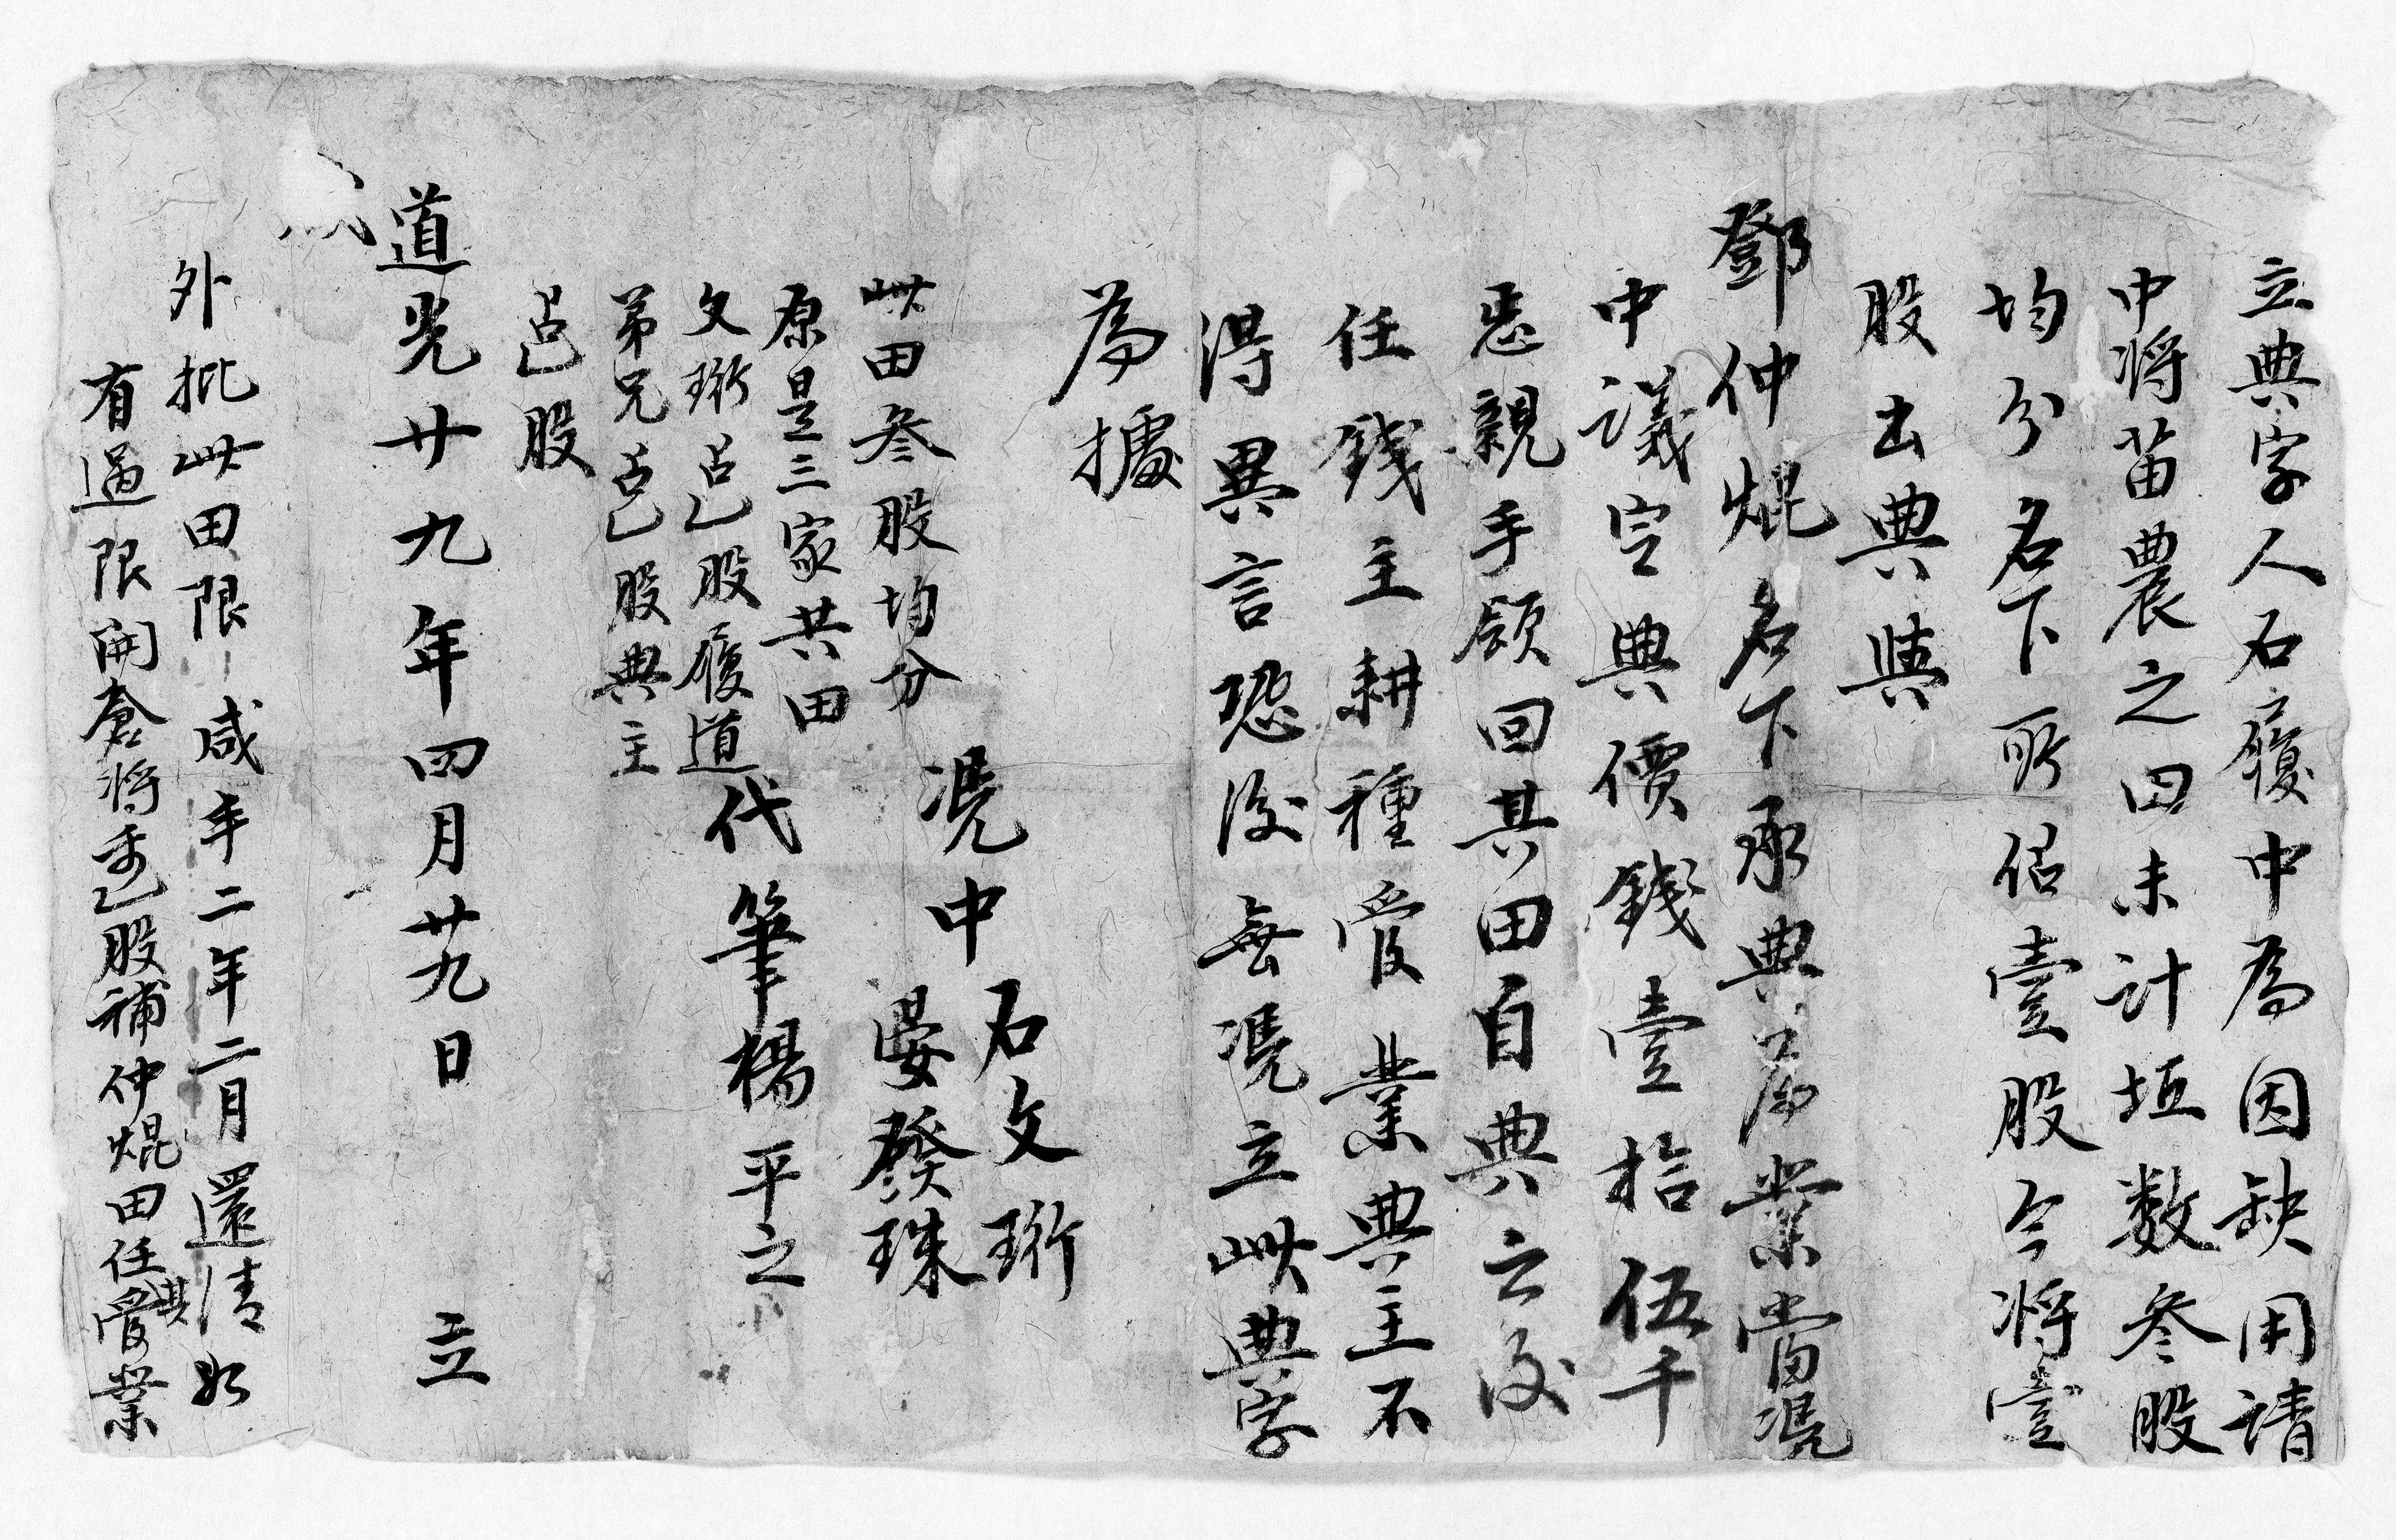 立典字人石履中為因缺用請
中將苗農之田未計坵数叁股
均分名下所佔壹股今將壹
股出典與
鄧仲焜名下承典為業當凴
中議定典價錢壹拾伍千
悉親手領回其田自典之後
任錢主耕種管業典主不
得異言恐後無凴立此典字
為據
凴中 石文珩
晏發珠
代筆楊平之
此田叁股均分
原是三家共田
文珩占乙股履道
弟兄占乙股典主
占乙股
道光廿九年四月廿九日 立
外批此田限咸年二年二月還清如
有過限開倉將乙股補仲焜田任其管業